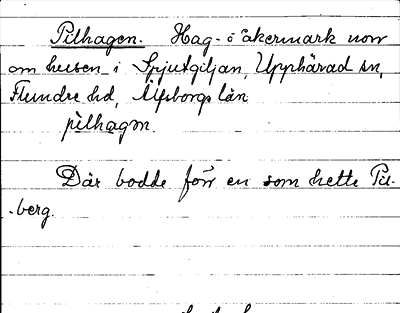 Pilhagen. Hag- o åkermark norr
om husen i Spjutgiljan, Upphärad sn,
Flundre hd, Älfsborgs län
pilhagɘn.
Där bodde förr en som hette Pil-
-berg.